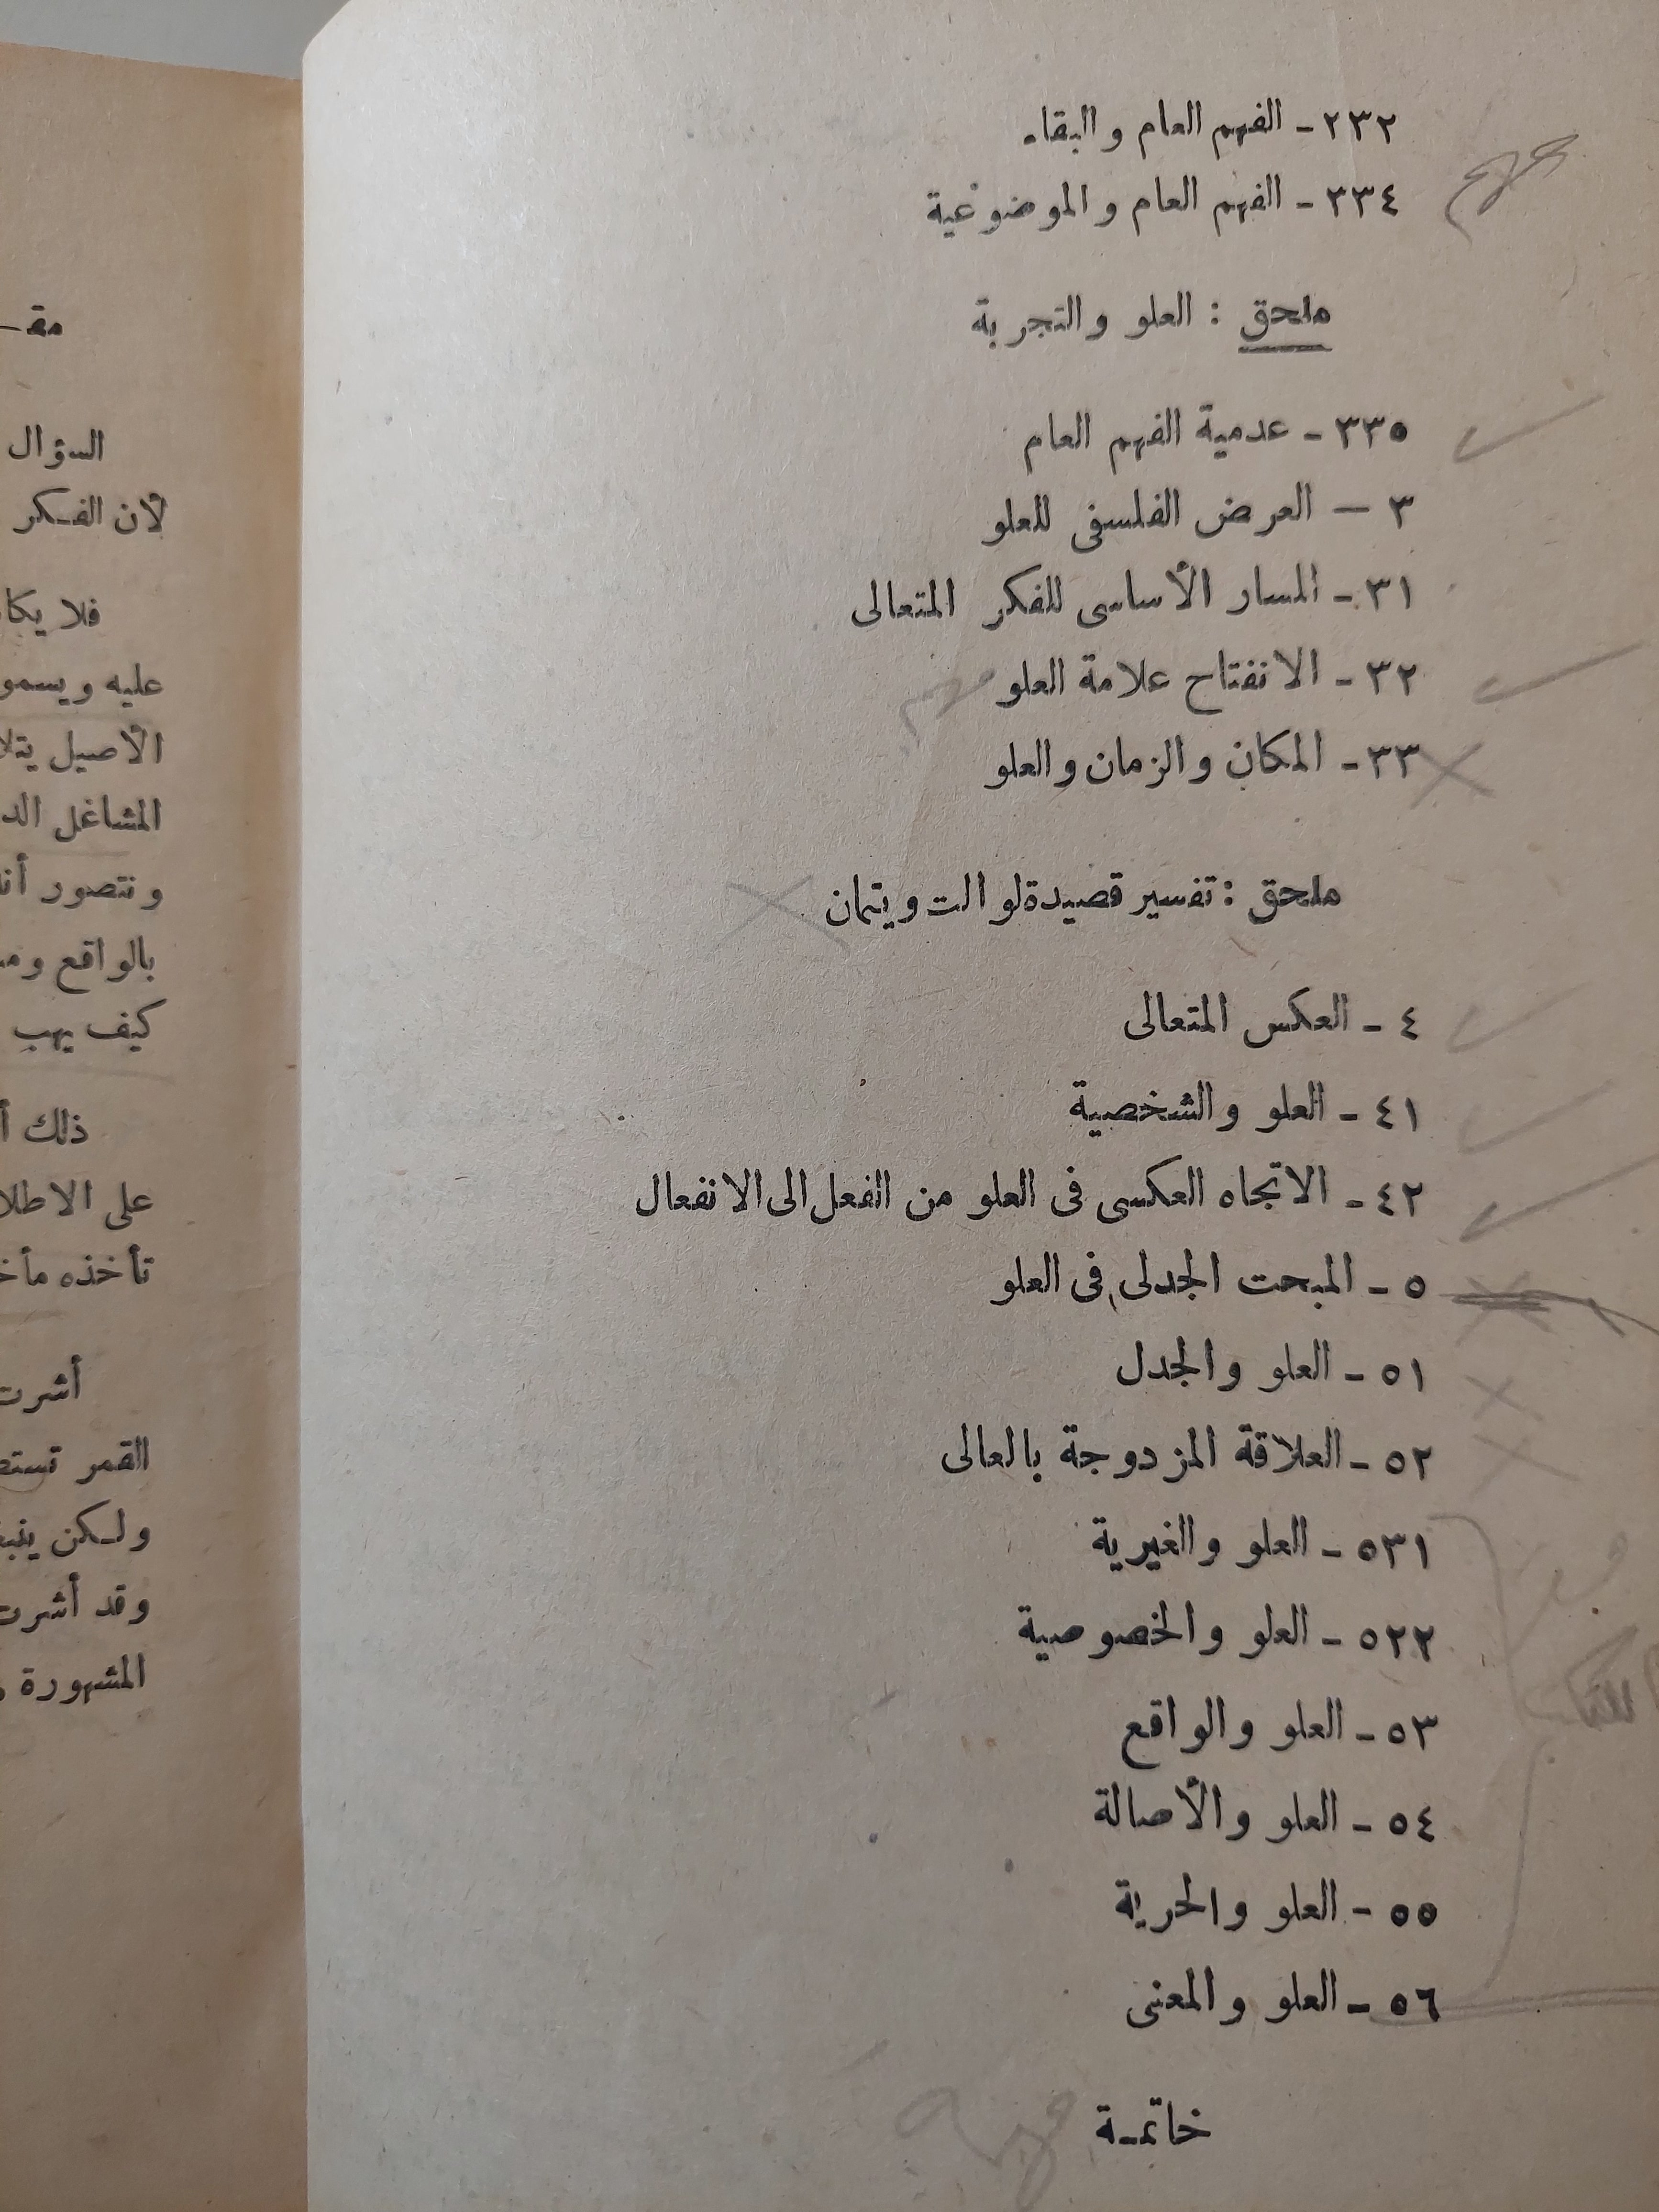 ٢٣٢ - الفهم العام والبقاء
٣٣٤ - الفهم العام والموضوعية
ملحق : العلو والتجربة
٣٣٥ - عدمية الفهم العام
٣ — العرض الفلسفى للعلو
٣١ - المسار الأساسى للفكر المتعالى
٣٢ - الانفتاح علامة العلو
مهم
٣٣ - المكان والزمان والعلو
ملحق : تفسير قصيدة لوالت ويتمان
٤ - العكس المتعالى
٤١ - العلو والشخصية
٤٢ - الاتجاه العكسى فى العلو من الفعل الى الانفعال
٥ - المبحت الجدلى فى العلو
٥١ - العلو والجدل
٥٢ - العلاقة المزدوجة بالعالى
٥٣١ - العلو والغيرية
٥٢٢ - العلو والخصوصية
٥٣ - العلو والواقع
٥٤ - العلو والأصالة
٥٥ - العلو والحرية
٥٦ - العلو والمعنى
خاتمـة
السؤال
لأن الفـكر
فلا
عليه ويسمو
الأصيل
المشاغل
ونتصور
بالواقع
كيف يهب
ذلك
على
تأخذه
أشرت
القمر
ولـكن
وقد أشرت
المشهورة